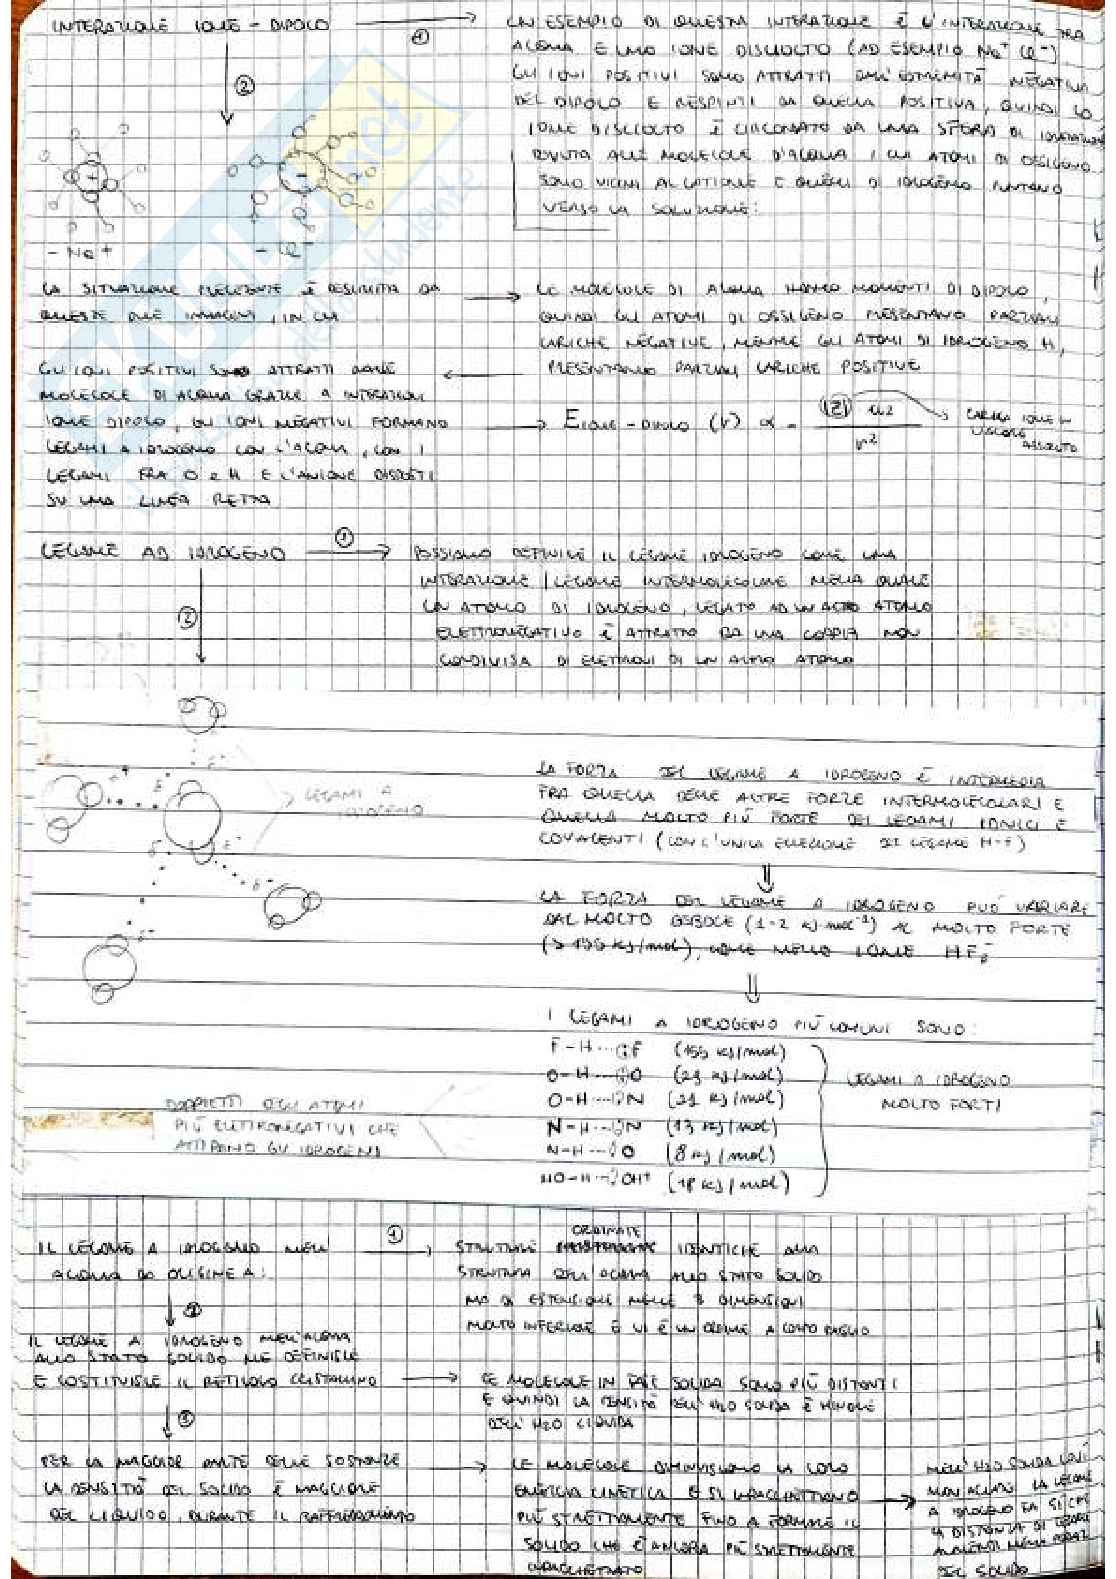 INTERAZIONE IONE - DIPOLO
①
②
UN ESEMPIO DI QUESTA INTERAZIONE È L'INTERAZIONE TRA
ACQUA E UNO IONE DISCIOLTO (AD ESEMPIO Na⁺ Cl⁻)
GLI IONI POSITIVI SONO ATTRATTI DALL'ESTREMITÀ NEGATIVA
DEL DIPOLO E RESPINTI DA QUELLA POSITIVA, QUINDI LO
IONE DISCIOLTO È CIRCONDATO DA UNA SFERA DI IDRATAZIONE
DOVUTA ALLE MOLECOLE D'ACQUA, I CUI ATOMI DI OSSIGENO
SONO VICINI AL CATIONE E QUELLI DI IDROGENO PUNTANO
VERSO LA SOLUZIONE:
- Na +
- Cl -
LA SITUAZIONE PRECEDENTE È DESCRITTA DA
QUESTE DUE IMMAGINI, IN CUI
LE MOLECOLE DI ACQUA HANNO MOMENTI DI DIPOLO,
QUINDI GLI ATOMI DI OSSIGENO PRESENTANO PARZIALI
CARICHE NEGATIVE, MENTRE GLI ATOMI DI IDROGENO H,
PRESENTANO PARZIALI CARICHE POSITIVE
GLI IONI POSITIVI SONO ATTRATTI DALLE
MOLECOLE DI ACQUA GRAZIE A INTERAZIONI
IONE DIPOLO, GLI IONI NEGATIVI FORMANO
LEGAMI A IDROGENO CON L'ACQUA, CON I
LEGAMI FRA O e H E L'ANIONE DISPOSTI
SU UNA LINEA RETTA
E IONE-DIPOLO (r) ∝ - |Z| μ2 / r²
CARICA IONE IN
VALORE
ASSOLUTO
LEGAME AD IDROGENO
①
②
POSSIAMO DEFINIRE IL LEGAME IDROGENO COME UNA
INTERAZIONE / LEGAME INTERMOLECOLARE NELLA QUALE
UN ATOMO DI IDROGENO, LEGATO AD UN ALTRO ATOMO
ELETTRONEGATIVO È ATTRATTO DA UNA COPPIA NON
CONDIVISA DI ELETTRONI DI UN ALTRO ATOMO
LEGAMI A
IDROGENO
LA FORZA DEL LEGAME A IDROGENO È INTERMEDIA
FRA QUELLA DELLE ALTRE FORZE INTERMOLECOLARI E
QUELLA MOLTO PIÙ FORTE DEI LEGAMI IONICI E
COVALENTI (CON L'UNICA ECCEZIONE DEL LEGAME H-F)
LA FORZA DEL LEGAME A IDROGENO PUÒ VARIARE
DAL MOLTO DEBOLE (1-2 kJ mol⁻¹) AL MOLTO FORTE
(>155 kJ/mol), COME NELLO IONE HF₂⁻
I LEGAMI A IDROGENO PIÙ COMUNI SONO:
F-H···:F (155 kJ/mol)
O-H···:O (21 kJ/mol)
O-H···:N (21 kJ/mol)
N-H···:N (13 kJ/mol)
N-H···:O (8 kJ/mol)
HO-H···:OH⁺ (18 kJ/mol)
LEGAMI A IDROGENO
MOLTO FORTI
DOPPIETTI DEGLI ATOMI
PIÙ ELETTRONEGATIVI CHE
ATTIRANO GLI IDROGENI
IL LEGAME A IDROGENO NELL'
ACQUA DA ORIGINE A:
①
ORDINATE
STRUTTURE IDENTICHE ALLA
STRUTTURA DELL'ACQUA ALLO STATO SOLIDO
MA DI ESTENSIONE NELLE 3 DIMENSIONI
MOLTO INFERIORE E VI È UN ORDINE A CORTO RAGGIO
②
IL LEGAME A IDROGENO NELL'ACQUA
ALLO STATO SOLIDO NE DEFINISCE
E COSTITUISCE IL RETICOLO CRISTALLINO
LE MOLECOLE IN FASE SOLIDA SONO PIÙ DISTANTI
E QUINDI LA DENSITÀ DELL'H2O SOLIDA È MINORE
DELL'H2O LIQUIDA
③
PER LA MAGGIOR PARTE DELLE SOSTANZE
LA DENSITÀ DEL SOLIDO È MAGGIORE
DEL LIQUIDO, DURANTE IL RAFFREDDAMENTO
LE MOLECOLE DIMINUISCONO LA LORO
ENERGIA CINETICA E SI IMPACCHETTANO
PIÙ STRETTAMENTE FINO A FORMARE IL
SOLIDO CHE È ANCORA PIÙ STRETTAMENTE
IMPACCHETTATO
NELL'H2O SOLIDA
IL LEGAME
A IDROGENO FA SI CHE
LA DISTANZA DI
DEL SOLIDO